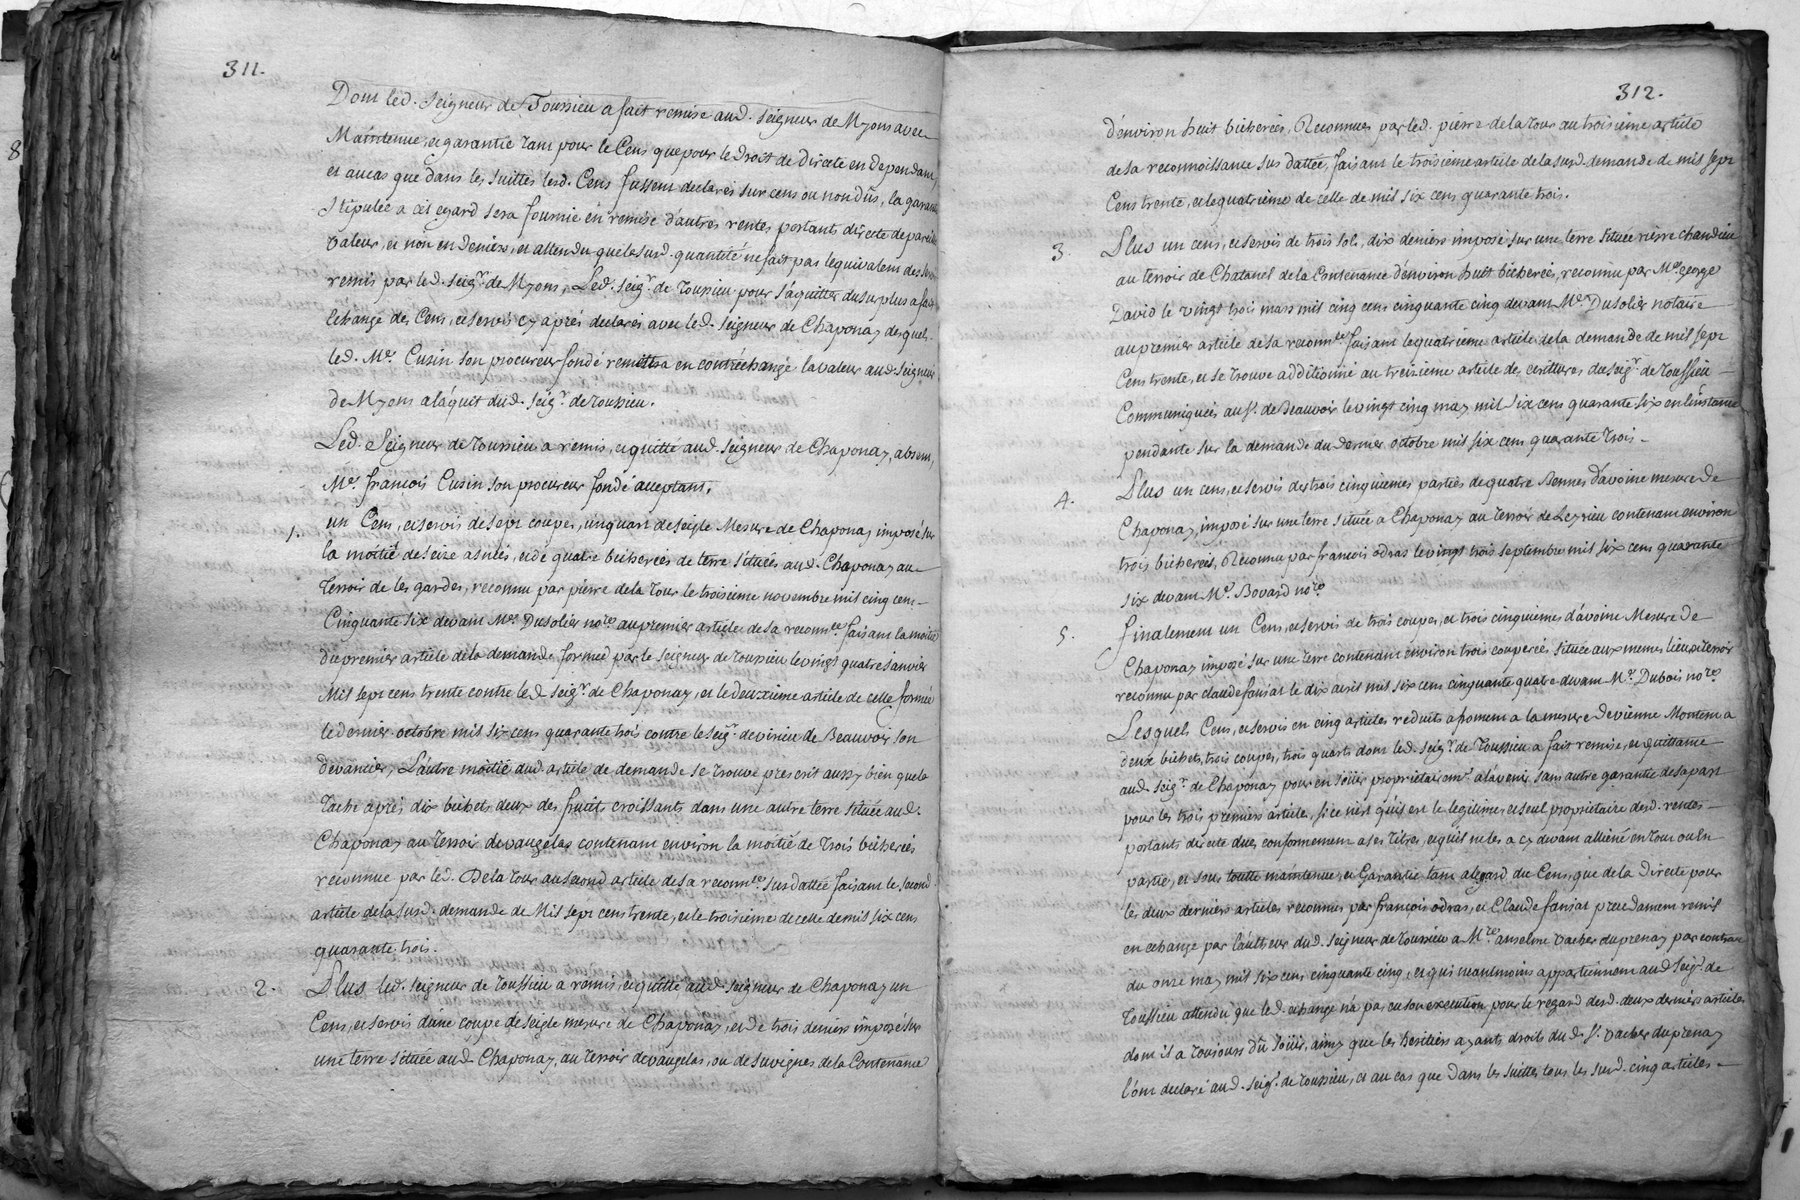 311.
Dont led. seigneur de Toussieu a fait remise aud. seigneur de Myons avec
Maintenue, et garantie tant pour le Cens que pour le Droit de Directe en dependant,
et au cas que dans les suittes lesd. Cens fussent declarés sur cens ou non dûs, la garantie
Stipulée a cet egard sera fournie en remise d'autres rentes portants directe de pareille
valeur, et non en deniers, et attendu que la susd. quantité ne fait pas l'equivalent des
remis par led. seigr. de Myons, Led. seigr. de toussieu pour s'aquitter du surplus a fait
lechange des Cens, et servis cy après declarés avec led. seigneur de Chaponay desquels
led. Me. Cusin son procureur fondé remettra en contrechange la valeur aud. seigneur
de Myons a l'aquit dud. seigr. de toussieu.
Led. Seigneur de toussieu a remis, et quitté aud. seigneur de Chaponay, absent,
Me. françois Cusin son procureur fondé acceptant,
1. un Cens, et servis de sept coupes, un quart de seigle Mesure de Chaponay imposé sur
la moitié de seize asnées, et de quatre bicherées de terre situées aud. Chaponay au
terroir de les gardes, reconnu par pierre dela tour le troisieme novembre mil cinq cens
Cinquante six devant Me. Dusolier nore. au premier article de sa reconnce. faisant la moitié
du premier article dela demande formée par le seigneur de toussieu le vingt quatre janvier
Mil sept cens trente contre led. seigr. de Chaponay, et le deuxieme article de celle formée
le dernier octobre mil six cens quarante trois contre le seigr. de virieu de Beauvoir son
devancier, L'autre moitié dud. article de demande se trouve prescrit aussy bien que la
tache après dix bichets deux des fruits croissants dans une autre terre située aud.
Chaponay au terroir de vaugelas contenant environ la moitié de trois bicherées
reconnue par led. Dela tour au second article de sa reconnce. sus dattée faisant le second
article dela susd. demande de Mil sept cens trente, et le troisieme de celle de mil six cens
quarante trois.
2. Plus led. seigneur de toussieu a remis, et quitté aud. seigneur de Chaponay un
Cens, et servis d'une coupe de seigle mesure de Chaponay, et de trois deniers imposé sur
une terre située aud. Chaponay, au terroir de vaugelas, ou de suvignes de la Contenance
312.
d'environ huit bicherées, Reconnues par led. pierre de la tour au troisieme article
de sa reconnoissance sus dattée, faisant le troisieme article de la susd. demande de mil sept
Cens trente, et le quatrieme de celle de mil six cens quarante trois.
3. Plus un cens, et servis de trois sols, dix deniers imposé sur une terre située rierre chandieu
au terroir de Chatanel de la Contenance d'environ huit bicherées, reconnu par Me. george
David le vingt trois mars mil cinq cens cinquante cinq devant Me. Dusolier notaire
au premier article de sa reconnce. faisant le quatrieme article de la demande de mil sept
Cens trente, et se trouve additionné au treizieme article des ecritures du seigr. de toussieu
Communiquées au sr. de Beauvoir le vingt cinq may mil six cens quarante six en l'instance
pendante sur la demande du dernier octobre mil six cens quarante trois.
4. Plus un cens, et servis des trois cinquiemes parties de quatre Bennes d'avoine mesure de
Chaponay, imposé sur une terre située a Chaponay au terroir de Leyrieu contenant environ
trois bicherées, Reconnu par françois odras le vingt trois septembre mil six cens quarante
six devant Me. Bovard nore.
5. finalement un Cens, et servis de trois coupes, et trois cinquieme d'avoine Mesure de
Chaponay imposé sur une terre contenant environ trois couperées située aux memes lieu, et terroir
reconnu par claude fansat le dix avril mil six cens cinquante quatre devant Me. Dubois nore.
Lesquels Cens, et servis en cinq articles reduits a froment a la mesure de vienne Montent a
deux bichets, trois coupes, trois quarts dont led. seigr. de toussieu a fait remise, et quittance
aud. seigr. de Chaponay pour en joüir propriétairemt. a l'avenir sans autre garantie de sa part
pour les trois premiers articles, si ce n'est qu'il est le legitime, et seul propriétaire desd. rentes
portants directe dues conformement a ses titres, et qu'il ne les a cy devant alliené en tout ou en
partie, et sous toutte maintenue, et Garantie tant a l'egard du Cens, que de la Directe pour
les deux derniers articles reconnus par françois odras, et Claude fansat precedament remis
en echange par l'autheur dud. seigneur de toussieu a Mre. anselme vacher du prenay par contrat
du onze may mil six cens cinquante cinq, et qui neantmoins appartiennent aud. seigr. de
toussieu attendu que led. echange n'a pas eu son execution pour le regard desd. deux derniers articles
dont il a toujours dû joüir, ainsy que les heritiers ayants droits dud. sr. vacher du prenay
l'ont declaré aud. seigr. de toussieu, et au cas que dans les suittes tous les susd. cinq articles